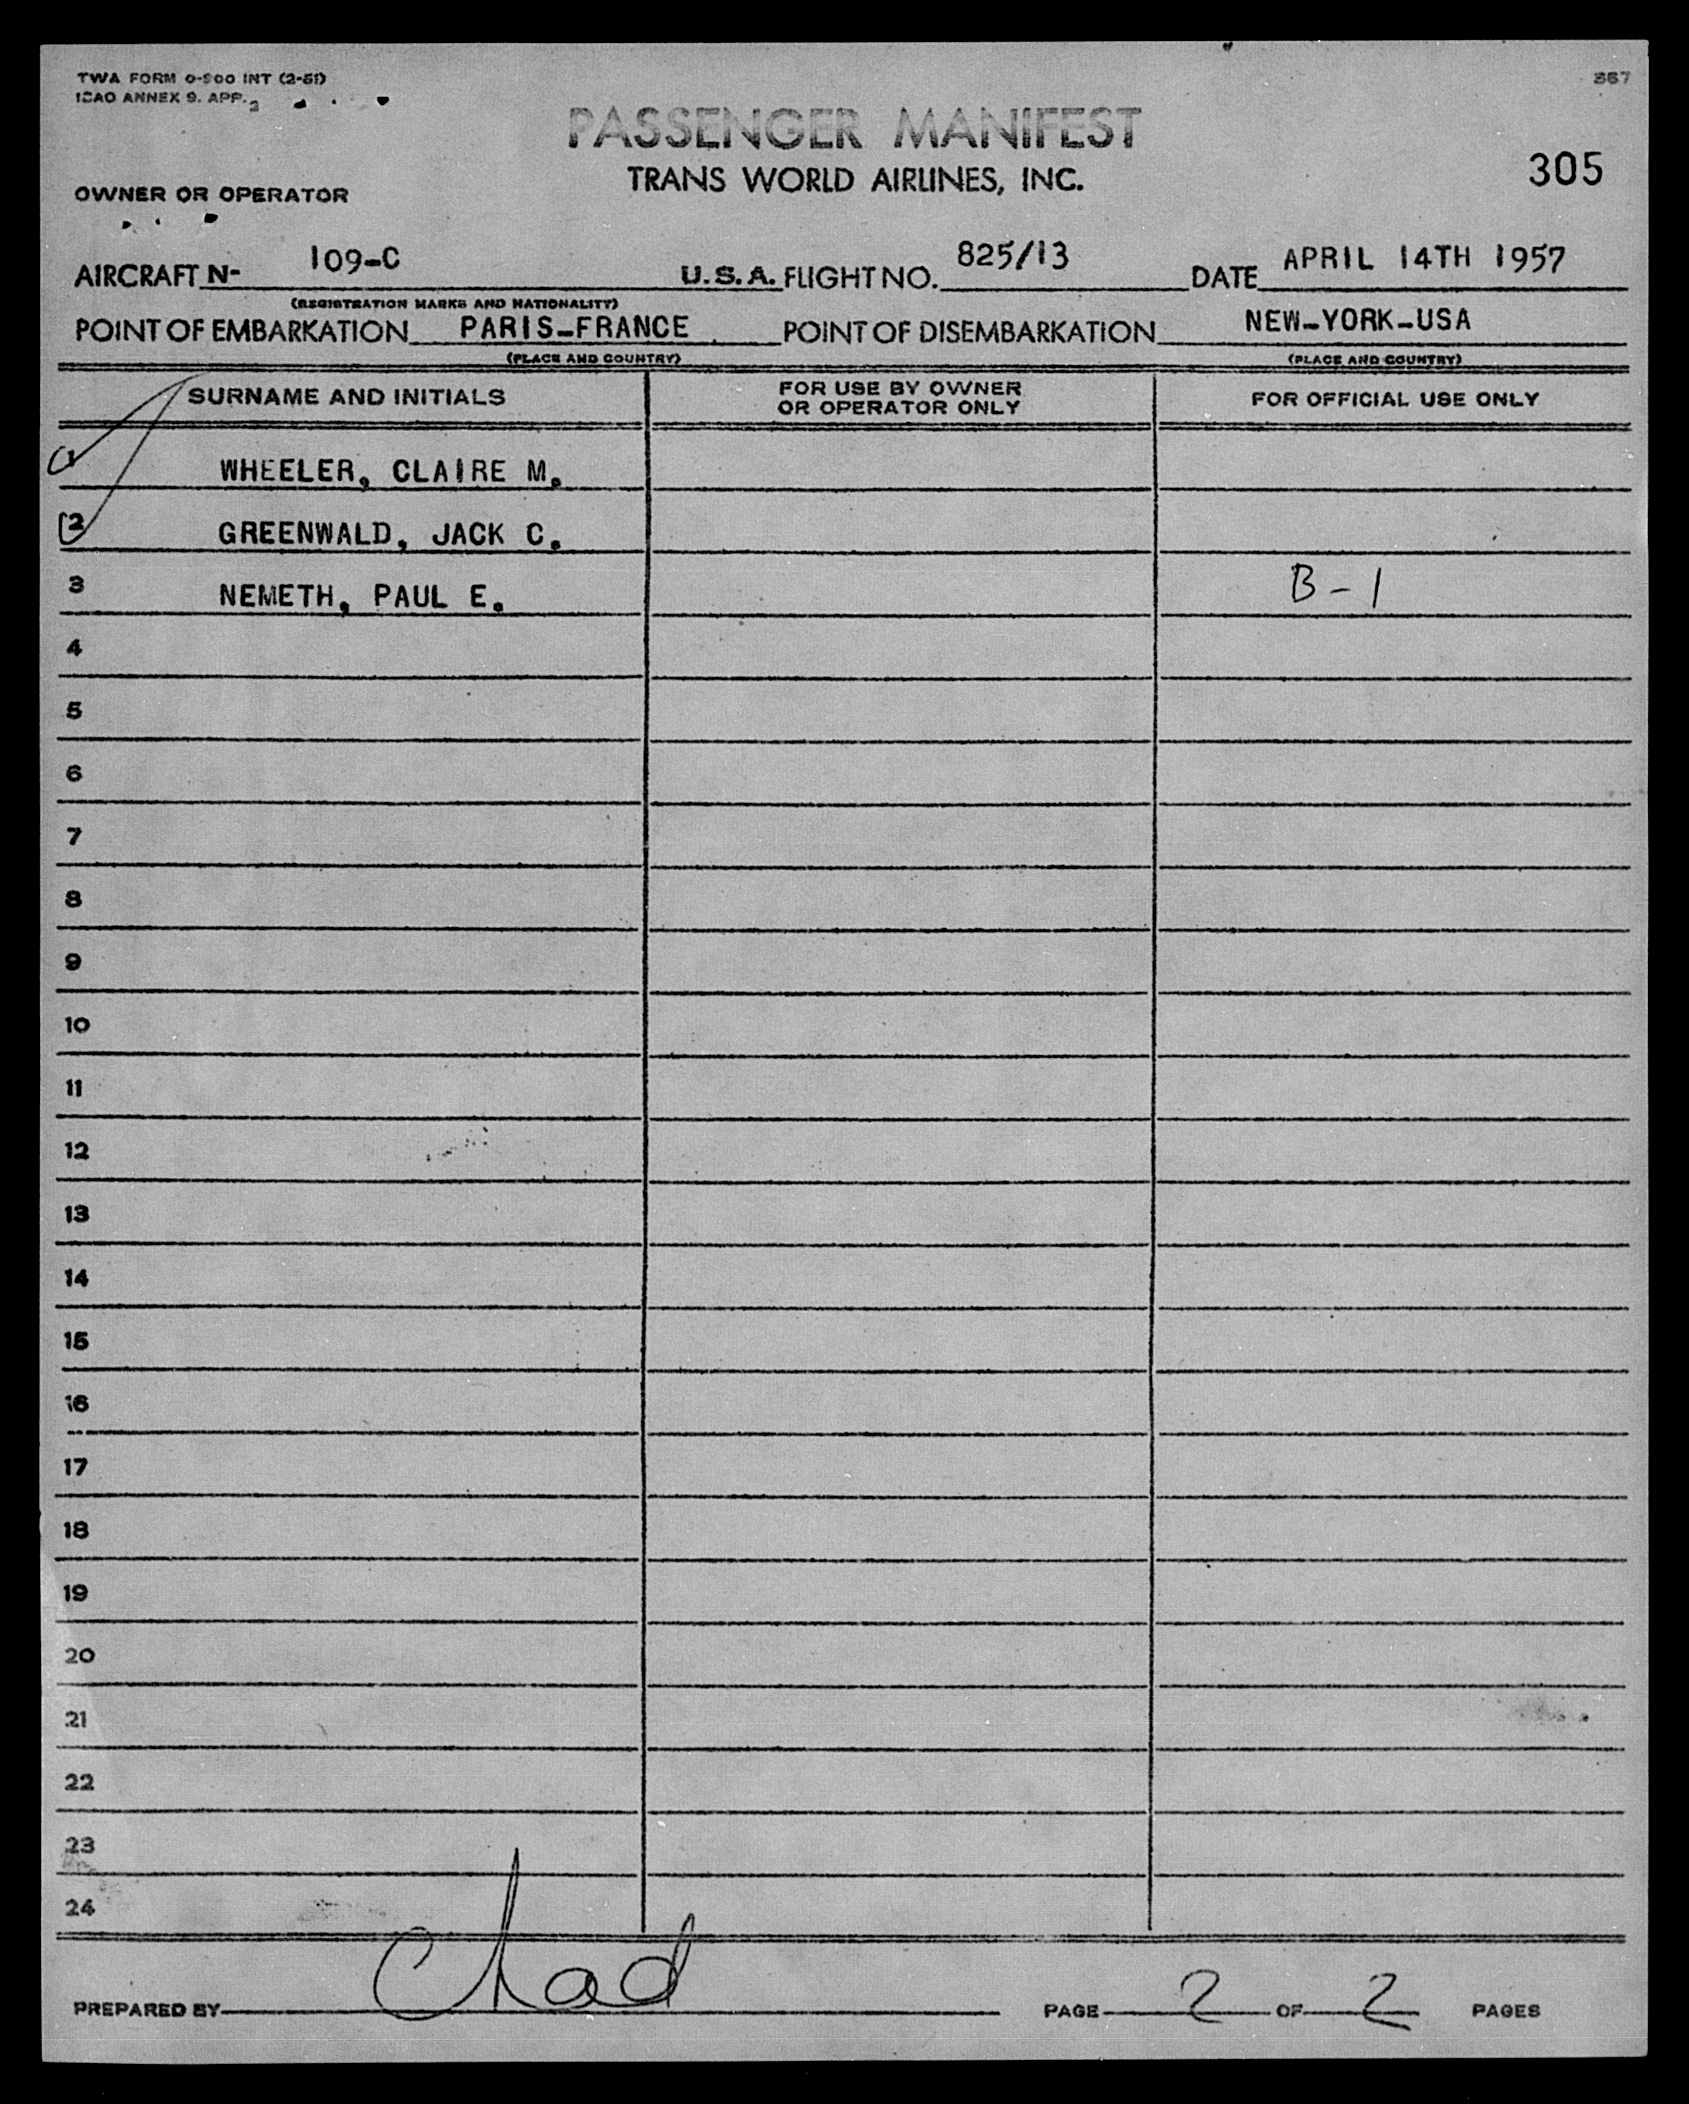 TWA FORM O-900 INT (2-51)
ICAO ANNEX 9. APP. 2
PASSENGER MANIFEST
TRANS WORLD AIRLINES, INC.
305
OWNER OR OPERATOR
AIRCRAFT N- 109-C U.S.A. FLIGHT NO. 825/13 DATE APRIL 14TH 1957
(REGISTRATION MARKS AND NATIONALITY)
POINT OF EMBARKATION PARIS-FRANCE POINT OF DISEMBARKATION NEW-YORK-USA
(PLACE AND COUNTRY) (PLACE AND COUNTRY)
SURNAME AND INITIALS FOR USE BY OWNER OR OPERATOR ONLY FOR OFFICIAL USE ONLY
1 WHEELER, CLAIRE M.
2 GREENWALD, JACK C.
3 NEMETH, PAUL E. B-1
4
5
6
7
8
9
10
11
12
13
14
15
16
17
18
19
20
21
22
23
24
PREPARED BY Chad PAGE 2 OF 2 PAGES